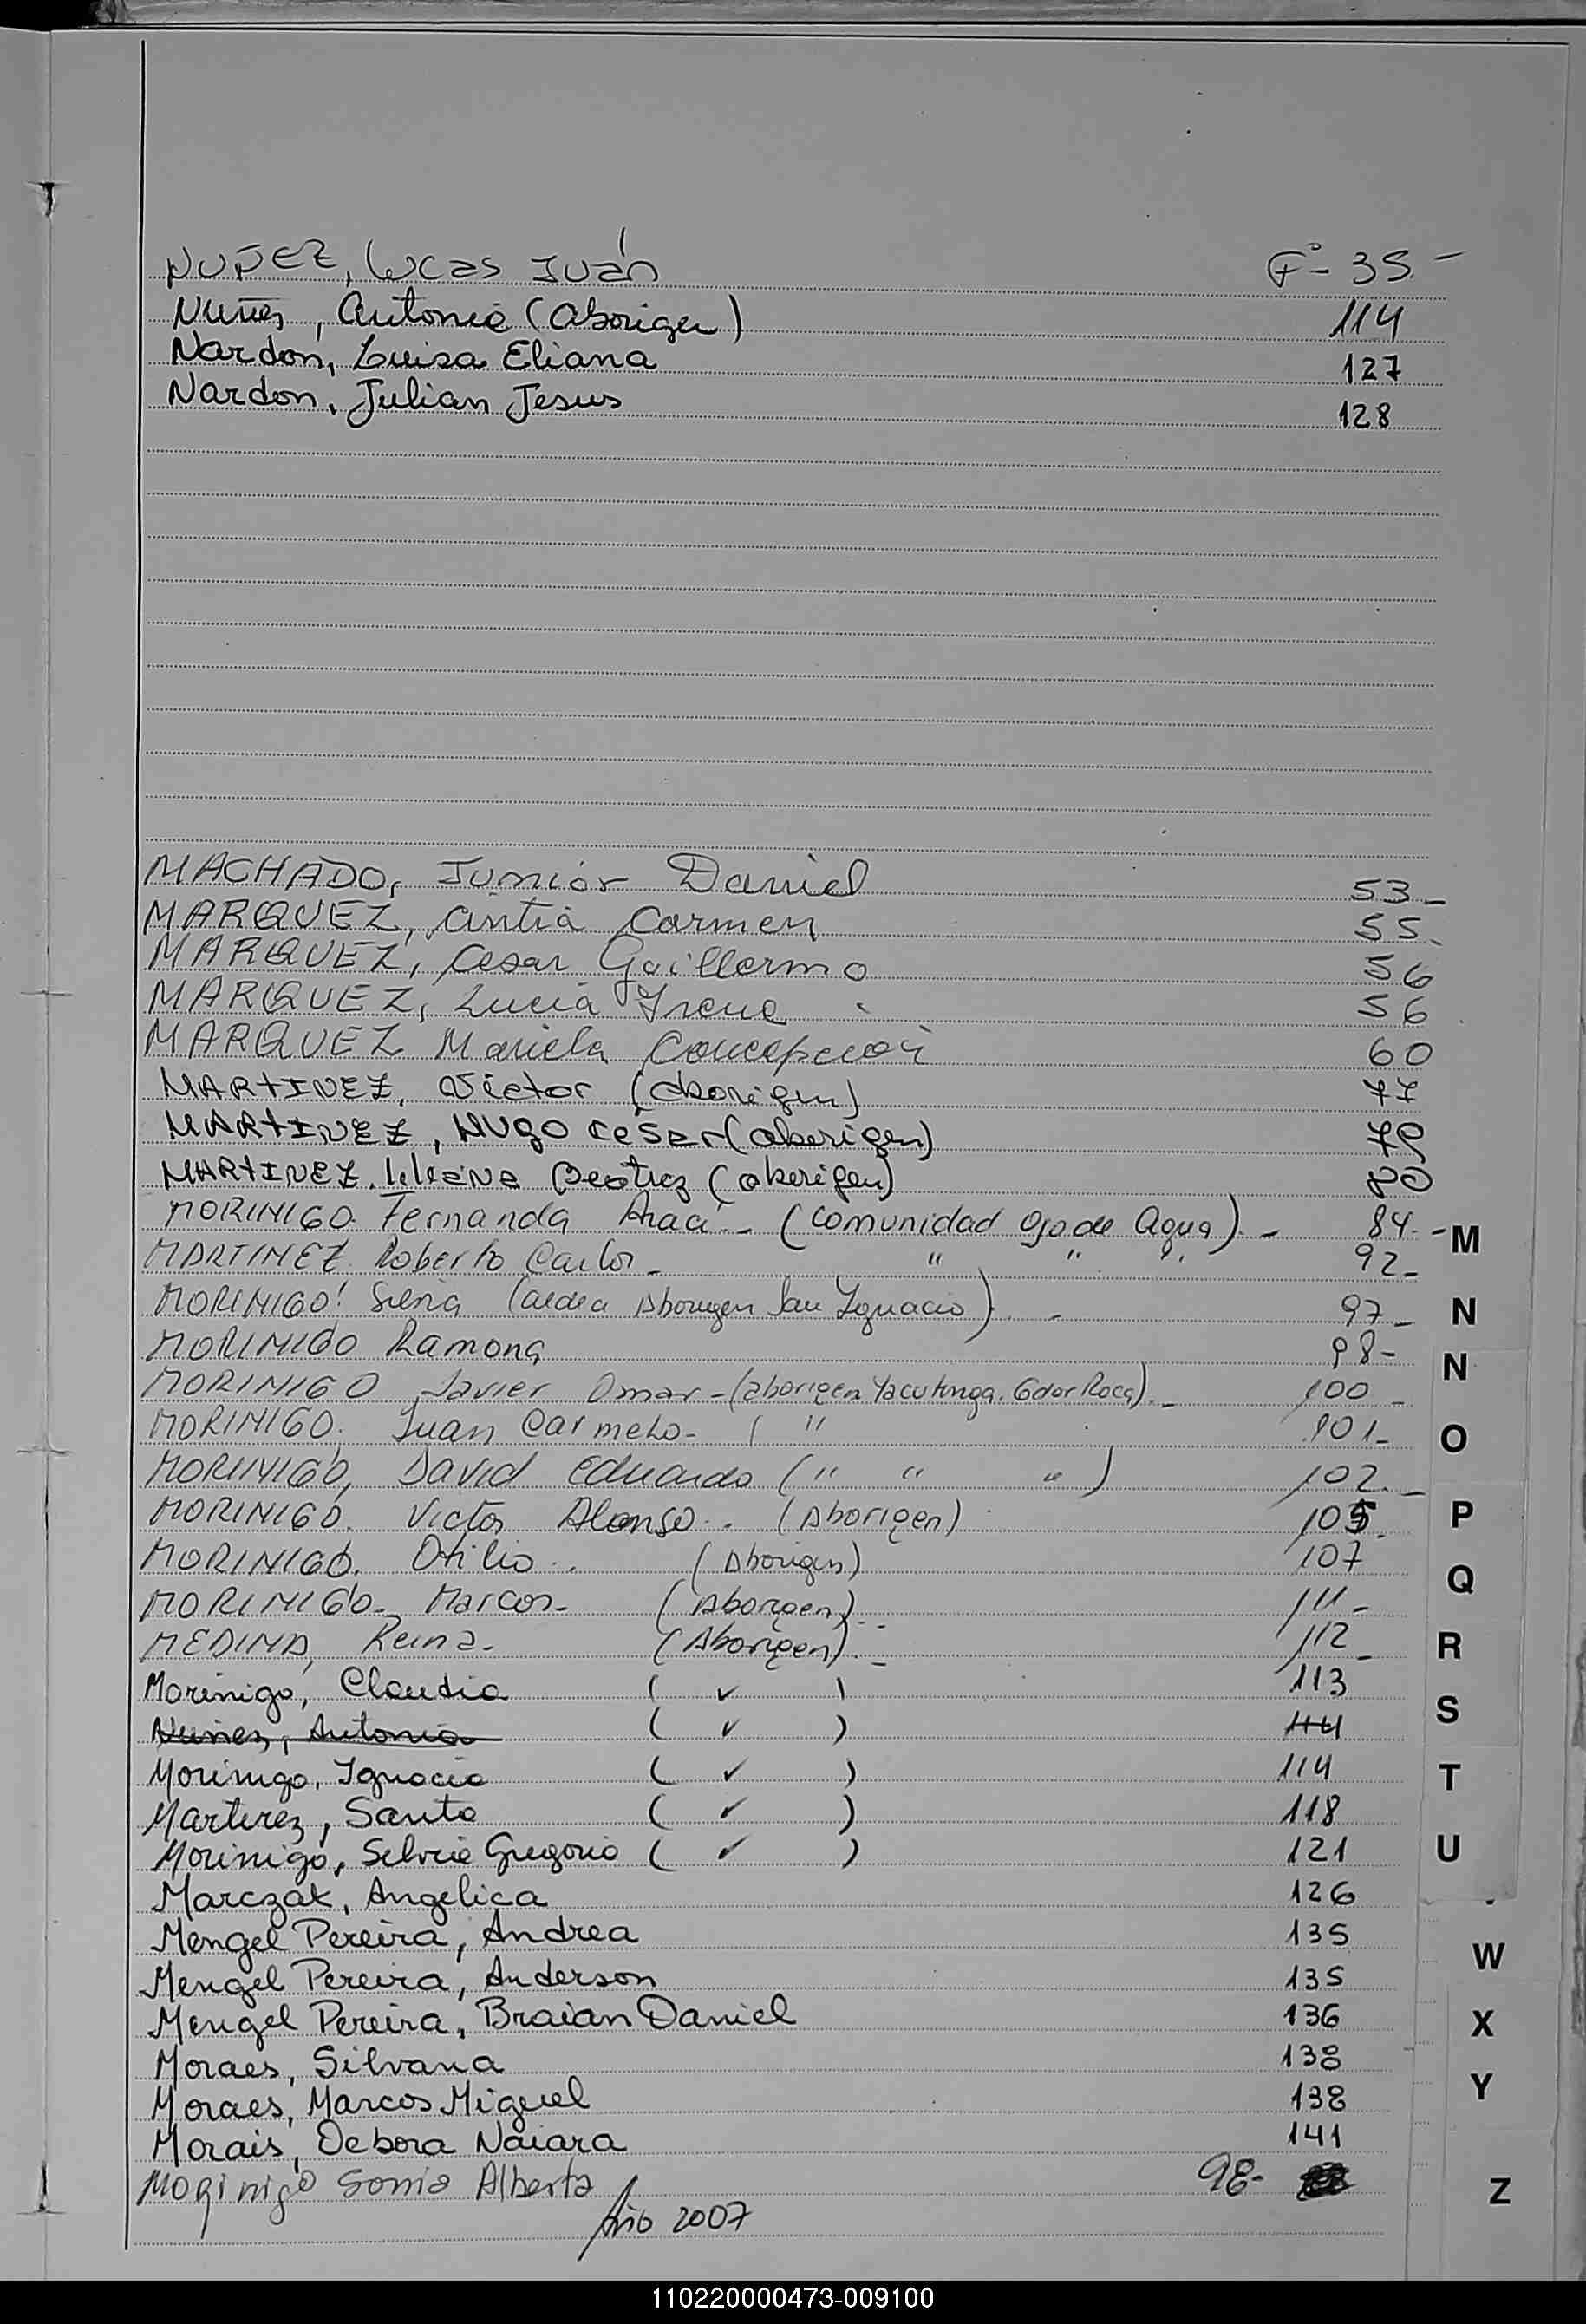 NUÑEZ, Lucas Iván Fº- 35.-
Nuñes, Antonia (aborigen) 114
Nardon, Luisa Eliana 127
Nardon, Julian Jesus 128
MACHADO, Junior Daniel 53-
MARQUEZ, Cintia Carmen 55.
MARQUEZ, Cesar Guillermo 56
MARQUEZ, Lucia Irene 56
MARQUEZ Mariela Concepción 60
MARTINEZ, Victor (aborigen) 77
MARTINEZ, HUGO CESAR (aborigen) 79
MARTINEZ, Liliana Beatriz (aborigen) 80
MORINIGO. Fernanda Araci.- (Comunidad Ojo de Agua).- 84.-
MARTINEZ. Roberto Carlos- " " " 92-
MORINIGO! Silena (aldea Aborigen San Ignacio).- 97-
MORINIGO Ramona 98-
MORINIGO Javier Omar-(aborigen Yacutinga. Gdor Roca).- 100-
MORINIGO. Juan Carmelo- ( " 101-
MORINIGO, David Eduardo (" " ") 102.-
MORINIGO. Victor Alonso.. (Aborigen) 105.
MORINIGO. Otilio.. (Aborigen) 107
MORINIGO-, Marcos- (Aborigen).- 111-
MEDINA, Reina- (Aborigen).- 112-
Morinigo, Claudia ( ✓ ) 113
Nuñez, Antonia ( ✓ ) 114
Morinigo, Ignacio ( ✓ ) 114
Martinez, Santo ( ✓ ) 118
Morinigo, Silvio Gregorio ( ✓ ) 121
Marczak, Angelica 126
Mengel Pereira, Andrea 135
Mengel Pereira, Anderson 135
Mengel Pereira, Braian Daniel 136
Moraes, Silvana 138
Moraes, Marcos Miguel 138
Morais, Debora Naiara 141
Moginigo Sonia Alberta 98-
Año 2007
M
N
N
O
P
Q
R
S
T
U
W
X
Y
Z
110220000473-009100